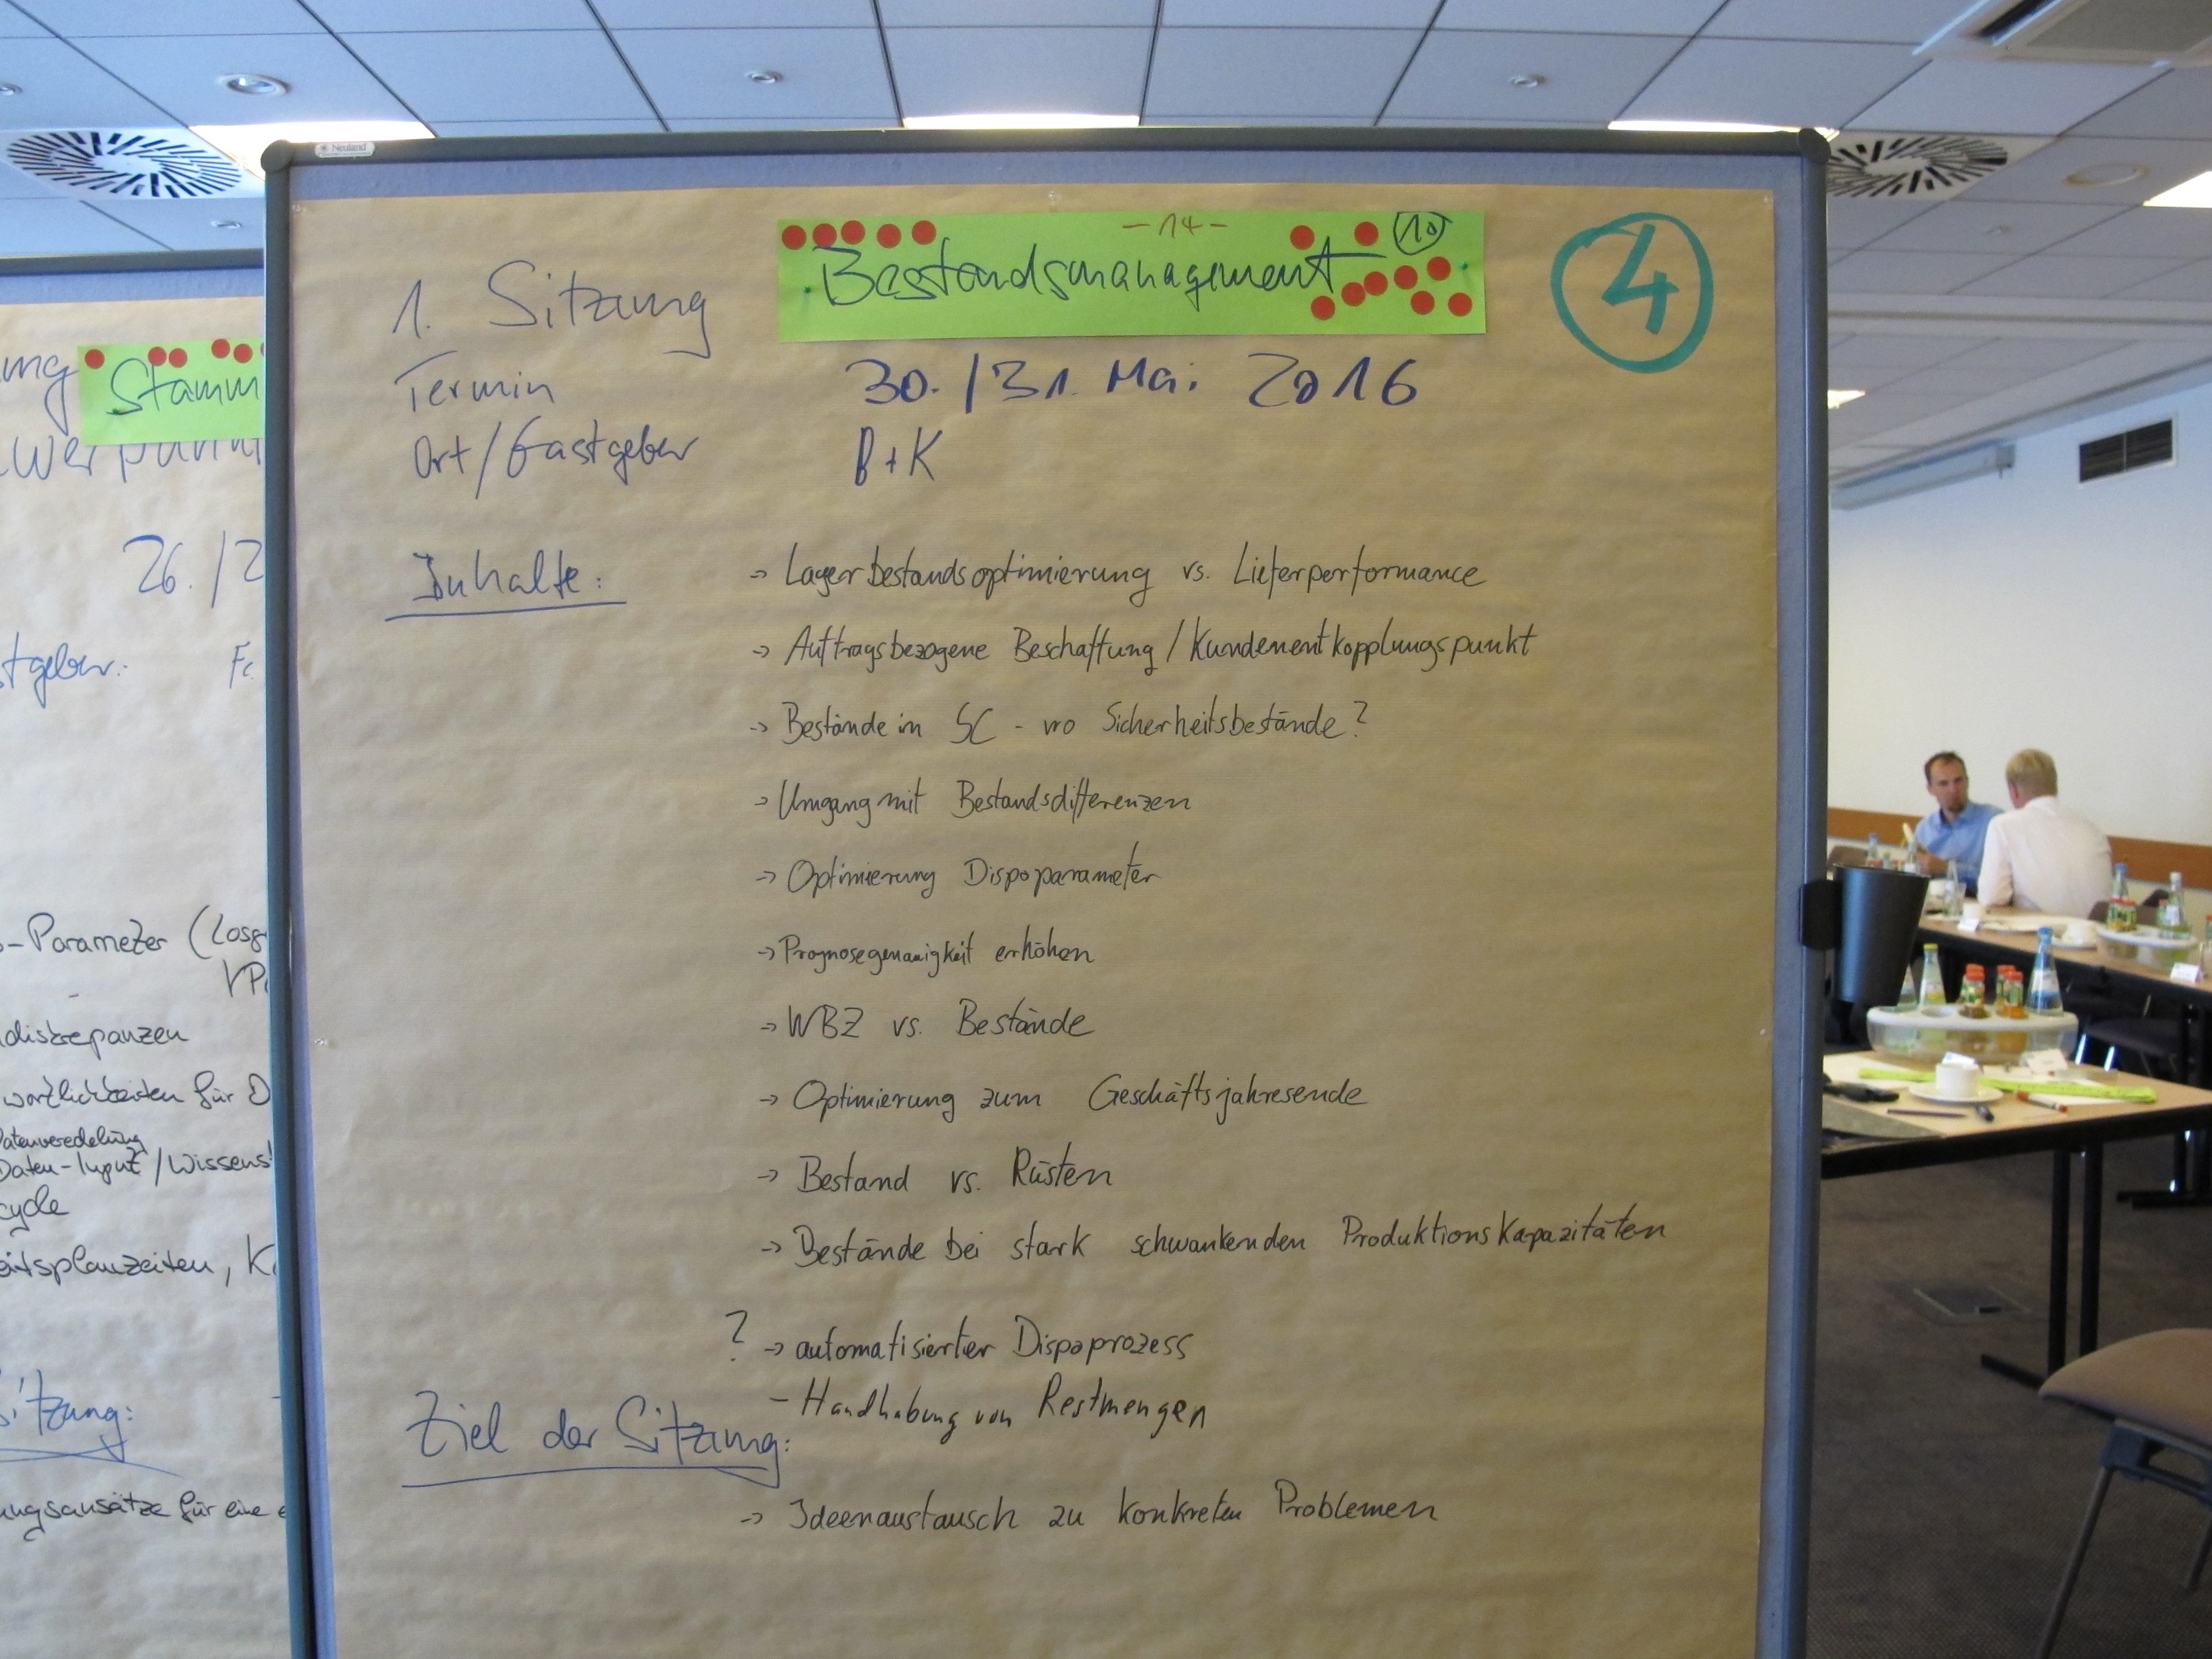 Neuland
- 14 -
10
Bestandsmanagement
4
1. Sitzung
Termin 30./31. Mai 2016
Ort/Gastgeber B+K
Inhalte:
-> Lagerbestandsoptimierung vs. Lieferperformance
-> Auftragsbezogene Beschaffung / Kundenentkopplungspunkt
-> Bestände in SC - wo Sicherheitsbestände?
-> Umgang mit Bestandsdifferenzen
-> Optimierung Dispoparameter
-> Prognosegenauigkeit erhöhen
-> WBZ vs. Bestände
-> Optimierung zum Geschäftsjahresende
-> Bestand vs. Rüsten
-> Bestände bei stark schwankenden Produktionskapazitäten
? -> automatisierter Dispoprozess
- Handhabung von Restmengen
Ziel der Sitzung:
-> Ideenaustausch zu konkreten Problemen
ung
Stamm
26./2
tgeber:
-Parameter (Losg
diskrepanzen
wortlichkeiten für D
Datenveredelung
Daten-Input / Wissens
cycle
eitsplanzeiten, K
itzung:
ungsansätze für eine